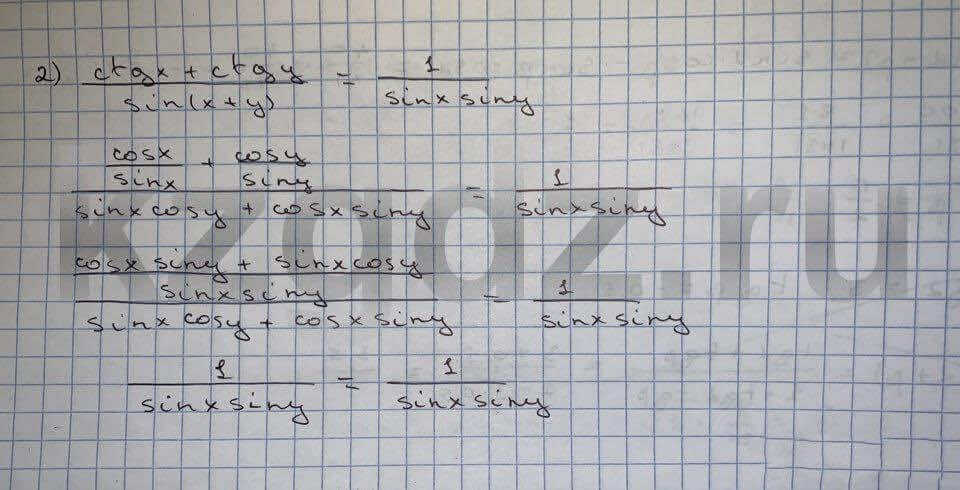 2) ctgx + ctgy / sin(x+y) = 1 / sinx siny
cosx / sinx + cosy / siny / sinx cosy + cosx siny = 1 / sinx siny
kzadz.ru
cosx siny + sinx cosy / sinx siny / sinx cosy + cosx siny = 1 / sinx siny
1 / sinx siny = 1 / sinx siny